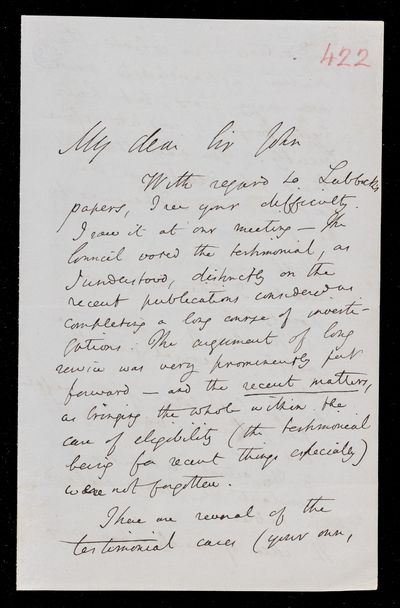 422
My dear Sir John
With regard to Lubbock's
papers, I see your difficulty.
I saw it at our meeting — The
Council voted the testimonial, as
I understood, distinctly on the
recent publications considered as
completing a long course of investi-
gations. The argument of long
service was very prominently put
forward — and the recent matters,
as bringing the whole within the
case of eligibility (the testimonial
being for recent things especially)
were not forgotten.
There are several of the
testimonial cases (your own,